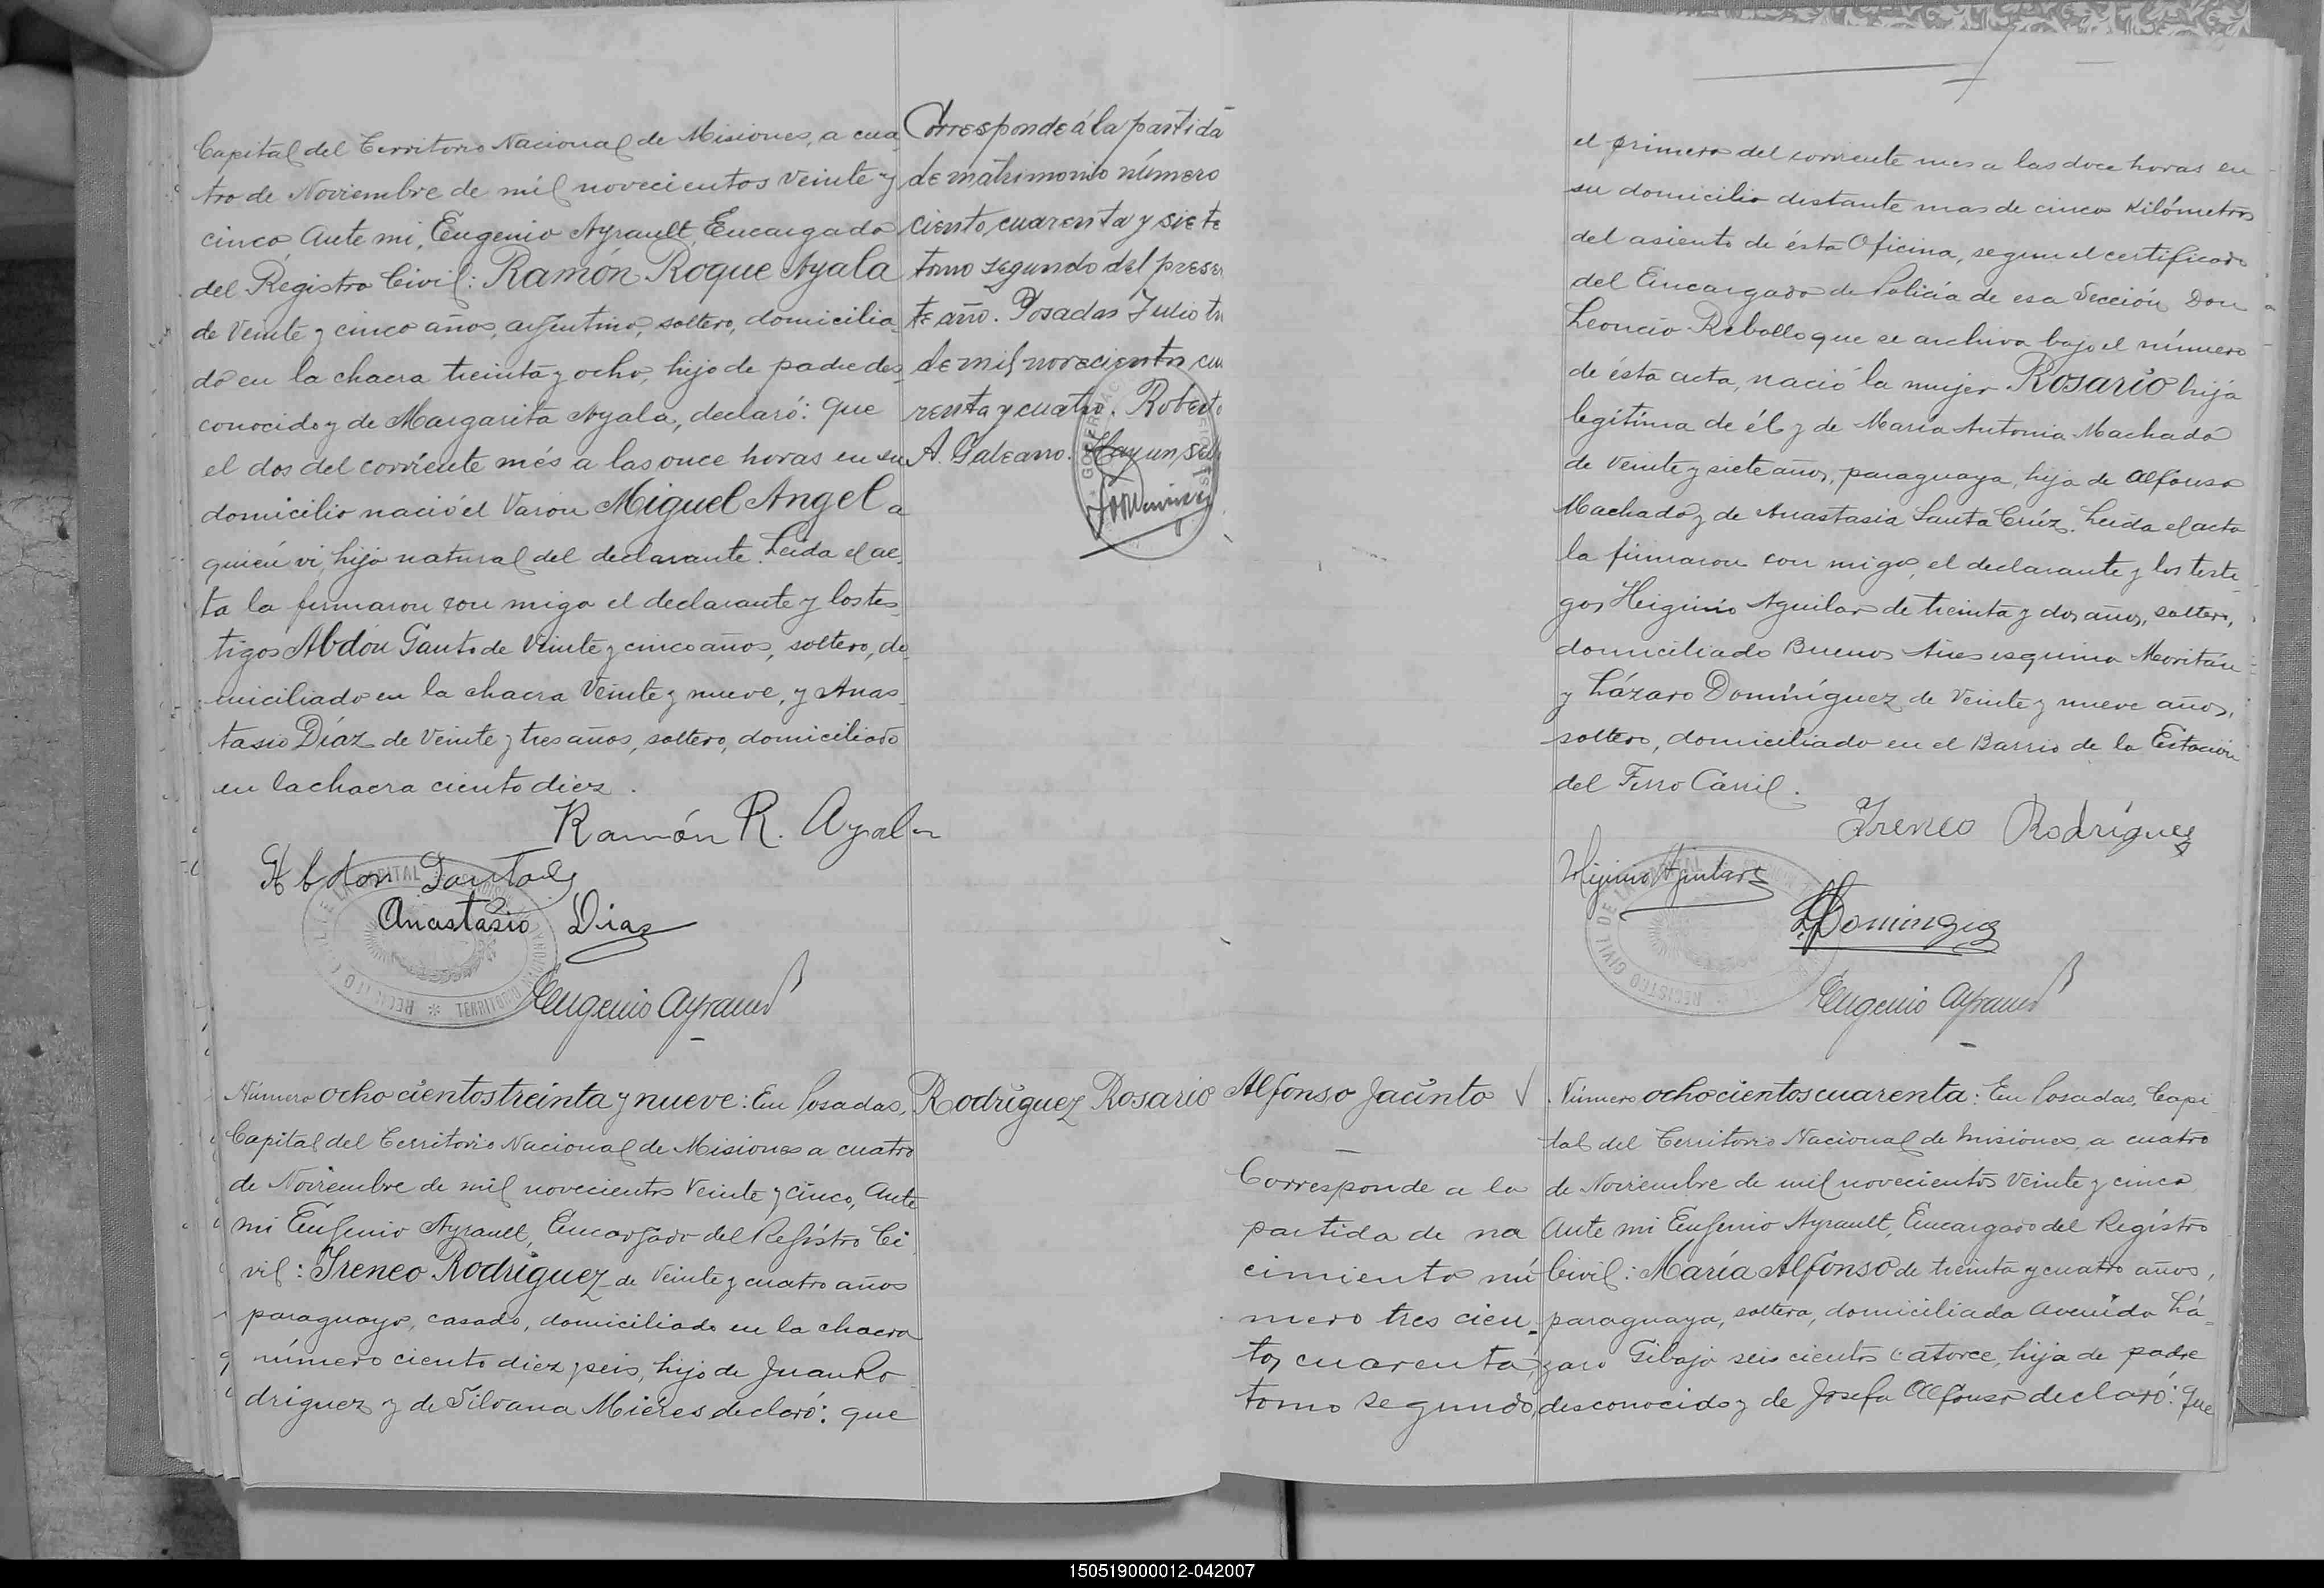 Capital del Territorio Nacional de Misiones, a cua-
tro de Noviembre de mil novecientos veinte y
cinco, Ante mi, Eugenio Ayrault, Encargado
del Registro Civil: Ramón Roque Ayala
de veinte y cinco años, argentino, soltero, domicilia-
do en la chacra treinta y ocho, hijo de padre des-
conocido y de Margarita Ayala, declaró: que
el dos del corriente més a las once horas en su
domicilio nació el varon Miguel Angel a
quien vi, hijo natural del declarante. Leida el ac-
ta la firmaron con migo el declarante y los tes-
tigos Abdón Gauto de veinte y cinco años, soltero, do-
miciliado en la chacra veinte y nueve, y Anas-
tasio Díaz de veinte y tres años, soltero, domiciliado
en la chacra ciento diez.
Ramón R. Ayala
Abdon
Anastasio Diaz
Eugenio Ayrault
Corresponde á la partida
de matrimonio número
ciento cuarenta y siete
tomo segundo del presen
te año. Posadas Julio
de mil novecientos cua
renta y cuatro. Roberto
A. Galeano. Hay un sell
Número ocho cientos treinta y nueve: En Posadas,
Capital del Territorio Nacional de Misiones a cuatro
de Noviembre de mil novecientos veinte y cinco, Ante
mi Eugenio Ayrault, Encargado del Registro Ci
vil: Ireneo Rodríguez de veinte y cuatro años
paraguayo, casado, domiciliado en la chacra
número ciento diez y seis, hijo de Juan Ro
driguez y de Silvana Mieres declaró: que
Rodríguez Rosario
el primero del corriente mes a las doce horas en
su domicilio distante mas de cinco Kilómetros
del asiento de ésta Oficina, segun el certificado
del Encargado de Policía de esa Sección Don
Leoncio Rebollo que se archiva bajo el número
de ésta acta, nació la mujer Rosario hija
legítima de él y de María Antonia Machado
de veinte y siete años, paraguaya, hija de Alfonso
Machado y de Anastasia Santa Crúz. Leida el acta
la firmaron con migo, el declarante y los testi-
gos Heiginio Aguilar de treinta y dos años, soltero,
domiciliado Buenos Aires esquina Moritán
y Lázaro Domínguez de veinte y nueve años,
soltero, domiciliado en el Barrio de la Estación
del Ferro Carril.
Ireneo Rodríguez
Higinio Aguilar
Eugenio Ayrault
Alfonso Jacinto
Corresponde a la
partida de na
cimiento nú
mero tres cien-
tos cuarenta,
tomo segundo,
Número ochocientos cuarenta: En Posadas, Capi
tal del Territorio Nacional de Misiones, a cuatro
de Noviembre de mil novecientos veinte y cinco
Ante mi Eugenio Ayrault, Encargado del Registro
Civil: María Alfonso de treinta y cuatro años,
paraguaya, soltera, domiciliada Avenida Lá-
zaro Gibajo seis cientos catorce, hija de padre
desconocido y de Josefa Alfonso declaró: que
150519000012-042007